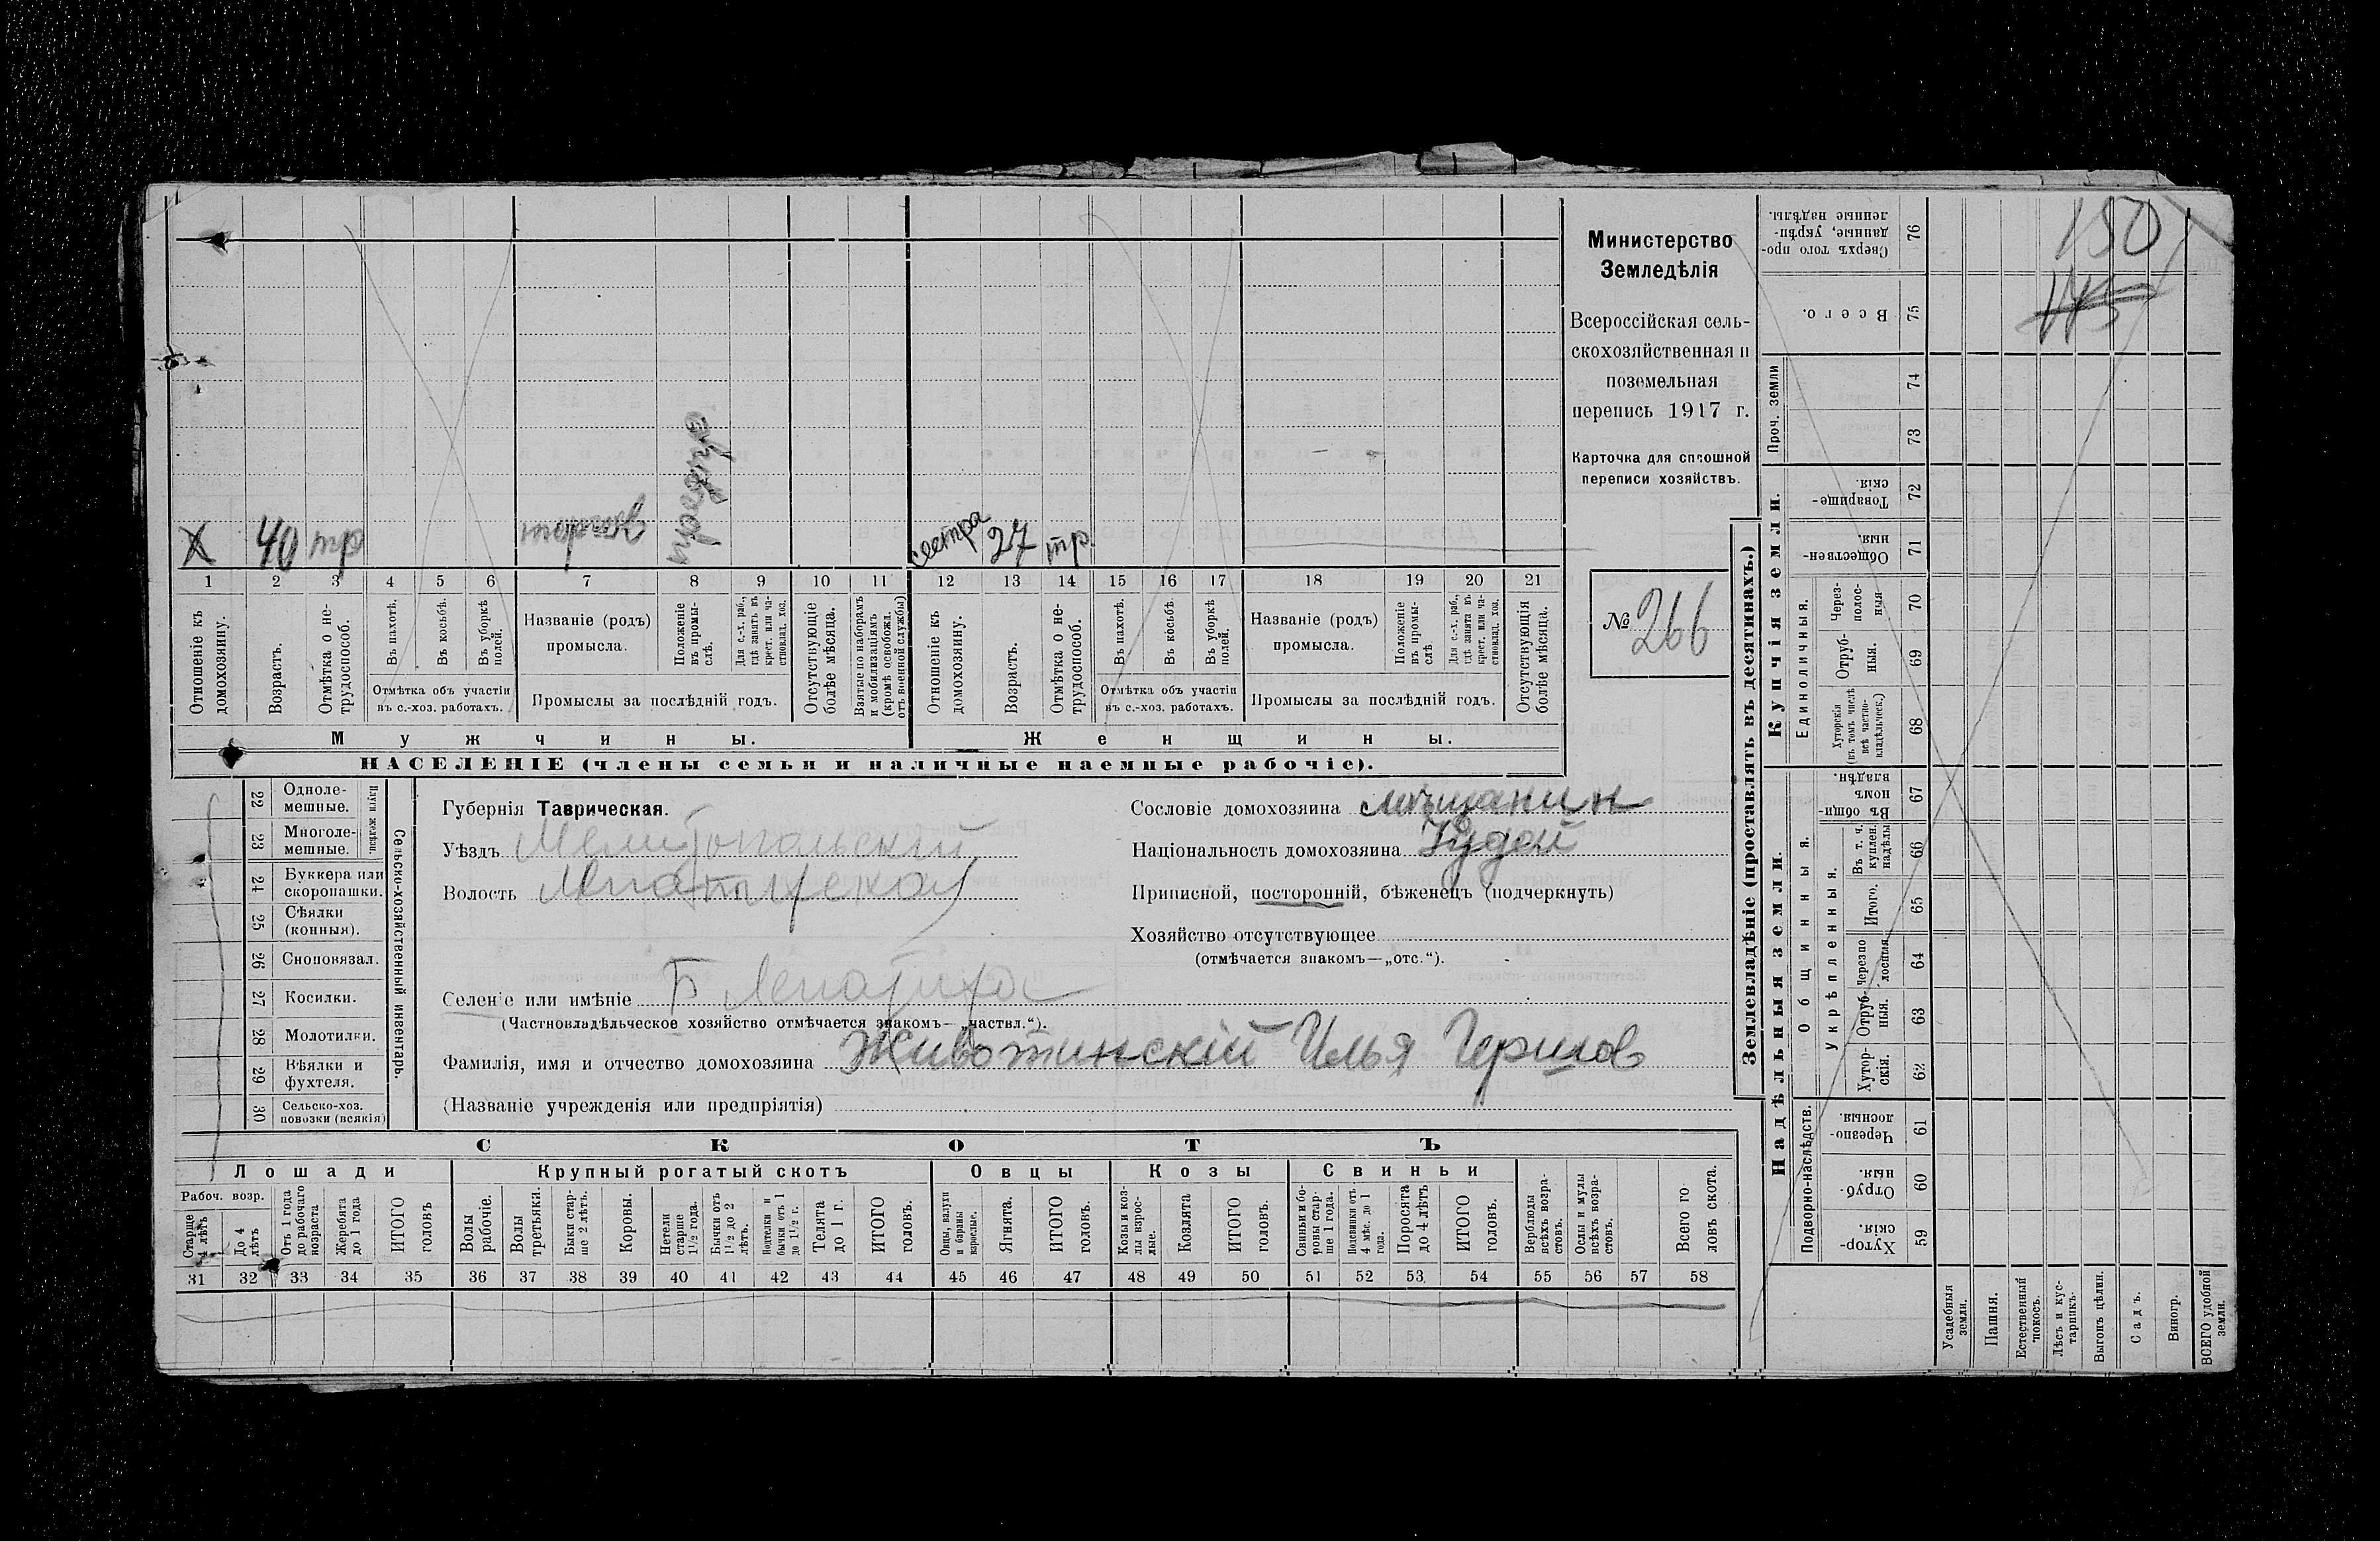 150
145
Министерство
Земледѣлія
Всероссійская сель-
скохозяйственная и
поземельная
перепись 1917 г.
Карточка для сплошной
переписи хозяйствъ.
№ 266
Х 40 тр торговл сестра 27 тр.
1 2 3 4 5 6 7 8 9 10 11 12 13 14 15 16 17 18 19 20 21
Отношеніе къ домохозяину.
Возрастъ.
Отмѣтка о не-трудоспособ.
Въ пахотѣ.
Въ косьбѣ.
Въ уборкѣ полей.
Отмѣтка объ участіи
въ с.-хоз. работахъ.
Названіе (родъ)
промысла.
Положеніе въ промы-слѣ.
Для с.-х. раб., гдѣ занятъ въ крест. или ча-стновлад. хоз.
Промыслы за послѣдній годъ.
Отсутствующіе болѣе мѣсяца.
Взятые по наборамъ и мобилизаціямъ (кромѣ освобожд. отъ военной службы)
Отношеніе къ домохозяину.
Возрастъ.
Отмѣтка о не-трудоспособ.
Въ пахотѣ.
Въ косьбѣ.
Въ уборкѣ полей.
Отмѣтка объ участіи
въ с.-хоз. работахъ.
Названіе (родъ)
промысла.
Положеніе въ промы-слѣ
Для с.-х. раб., гдѣ занята въ крест. или ча-стновлад. хоз.
Промыслы за послѣдній годъ.
Отсутствующія болѣе мѣсяца.
Мужчины. Женщины.
НАСЕЛЕНІЕ (члены семьи и наличные наемные рабочіе).
22 Одноле-мешные.
23 Многоле-мешные.
Плуги желѣзн.
24 Буккера или скоропашки.
25 Сѣялки (конныя).
26 Сноповязал.
27 Косилки.
28 Молотилки.
29 Вѣялки и фухтеля.
30 Сельско-хоз. повозки (всякія)
Сельско-хозяйственный инвентарь.
Губернія Таврическая.
Уѣздъ Мелитопольскій
Волость Лепатихская
Селеніе или имѣніе Б Лепатиха
(Частновладѣльческое хозяйство отмѣчается знакомъ—„частвл.“).
Фамилія, имя и отчество домохозяина Животинскій Илья Гершов
(Названіе учрежденія или предпріятія)
Сословіе домохозяина мѣщанин
Національность домохозяина Іудей
Приписной, посторонній, бѣженецъ (подчеркнуть)
Хозяйство отсутствующее
(отмѣчается знакомъ—„отс.“).
СКОТЪ
Лошади Крупный рогатый скотъ Овцы Козы Свиньи
Рабоч. возр.
Старше 4 лѣтъ
До 4 лѣтъ
Отъ 1 года до рабочаго возраста
Жеребята до 1 года
ИТОГО головъ
Волы рабочіе.
Волы третьяки.
Быки стар-ше 2 лѣтъ.
Коровы.
Нетели старше 1½ года.
Бычки отъ 1½ до 2 лѣтъ.
Подтелки и бычки отъ 1 до 1½ г.
Телята до 1 г.
ИТОГО головъ.
Овцы, валухи и бараны взрослые.
Ягнята.
ИТОГО головъ.
Козы и коз-лы взрос-лые.
Козлята
ИТОГО головъ.
Свиньи и бо-ровы стар-ше 1 года.
Подсвинки отъ 4 мѣс. до 1 года.
Поросята до 4 лѣтъ
ИТОГО головъ.
Верблюды всѣхъ возра-стовъ.
Ослы и мулы всѣхъ возра-стовъ.
Всего го ловъ скота.
31 32 33 34 35 36 37 38 39 40 41 42 43 44 45 46 47 48 49 50 51 52 53 54 55 56 57 58
Землевладѣніе (проставлять въ десятинахъ.)
Надѣльныя земли. Купчія земли. Проч. земли
Подворно-наслѣдств. Общинныя. Единоличныя.
Укрѣпленныя.
Сверхъ того про-данные, укрѣп-ленные надѣлы. 76
Всего. 75
74
73
Товарище-скія. 72
Обществен-ныя. 71
Через-полос-ныя 70
Отруб-ныя. 69
Хуторскія (въ томъ числѣ всѣ частно-владѣльческ.) 68
Въ общи номъ владѣн. 67
Въ т. ч. куплен. надѣлы 66
Итого. 65
Черезпо лосныя 64
Отруб-ныя. 63
Хутор-скія. 62
Черезпо-лосныя. 61
Отруб-ныя. 60
Хутор-скія. 59
Усадебныя земли.
Пашня.
Естественный покосъ.
Лѣсъ и кус-тарникъ.
Выгонъ цѣлин.
Садъ.
Виногр.
ВСЕГО удобной земли.